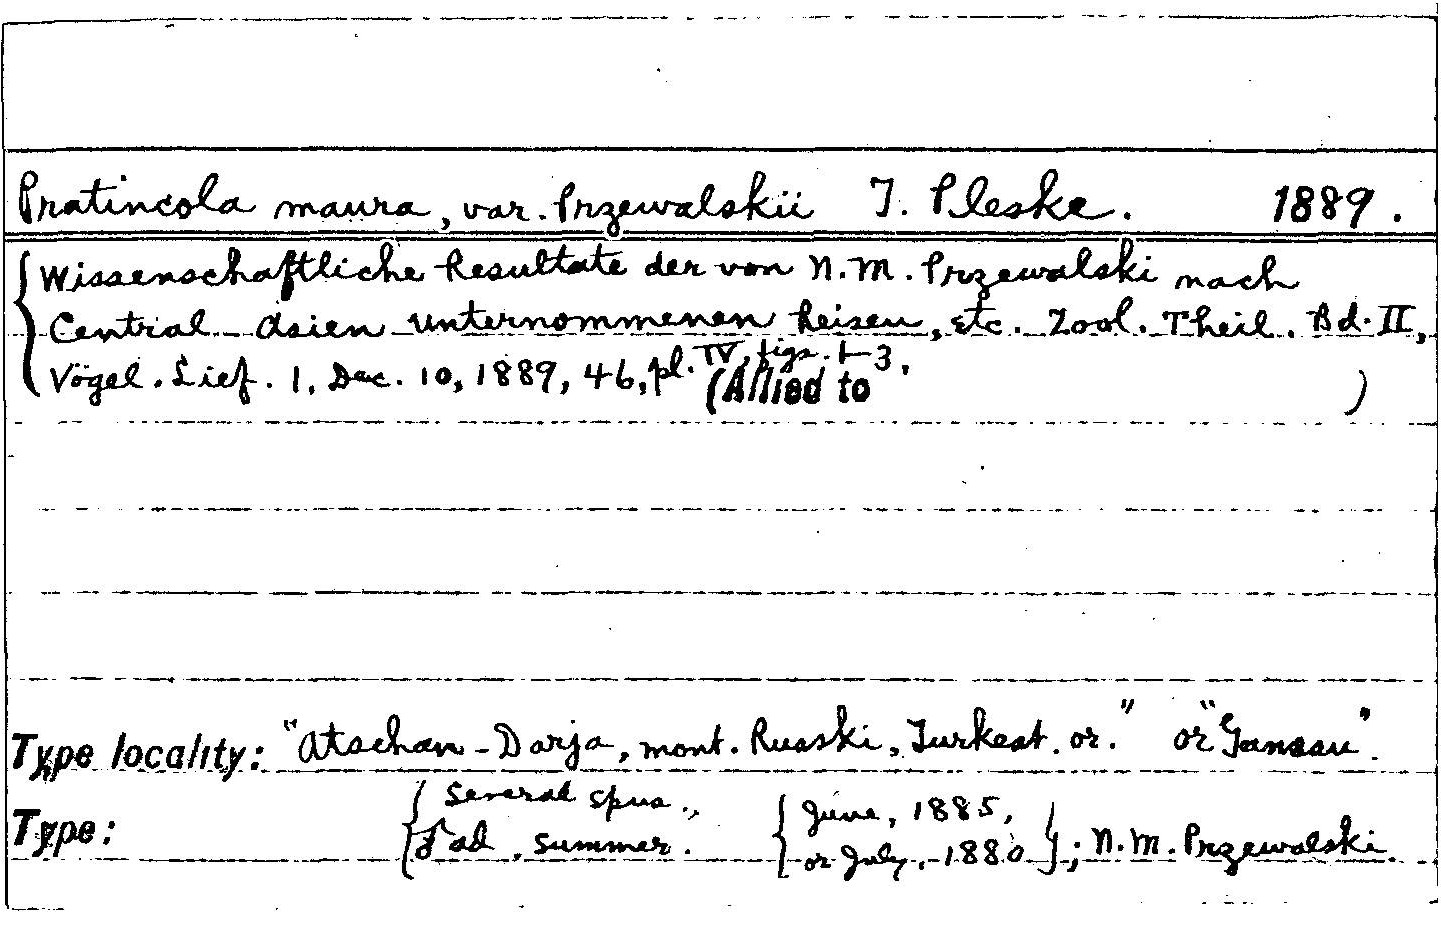 Pratincola maura, var. Przewalskii T. Pleske. 1889.
Wissenschaftliche Resultate der von N. M. Przewalski nach
Central Asien unternommenen Reisen, etc. Zool. Theil. Bd. II,
Vögel. Lief. 1, Dec. 10, 1889, 46, pl. IV, figs. 1-3.
(Allied to )
Type locality: "Atschan-Darja, mont. Russki, Turkest. or." or "Gansau".
Type: { Several spns., { June, 1885,
ad. summer. or July, 1880 } ; N. M. Przewalski.